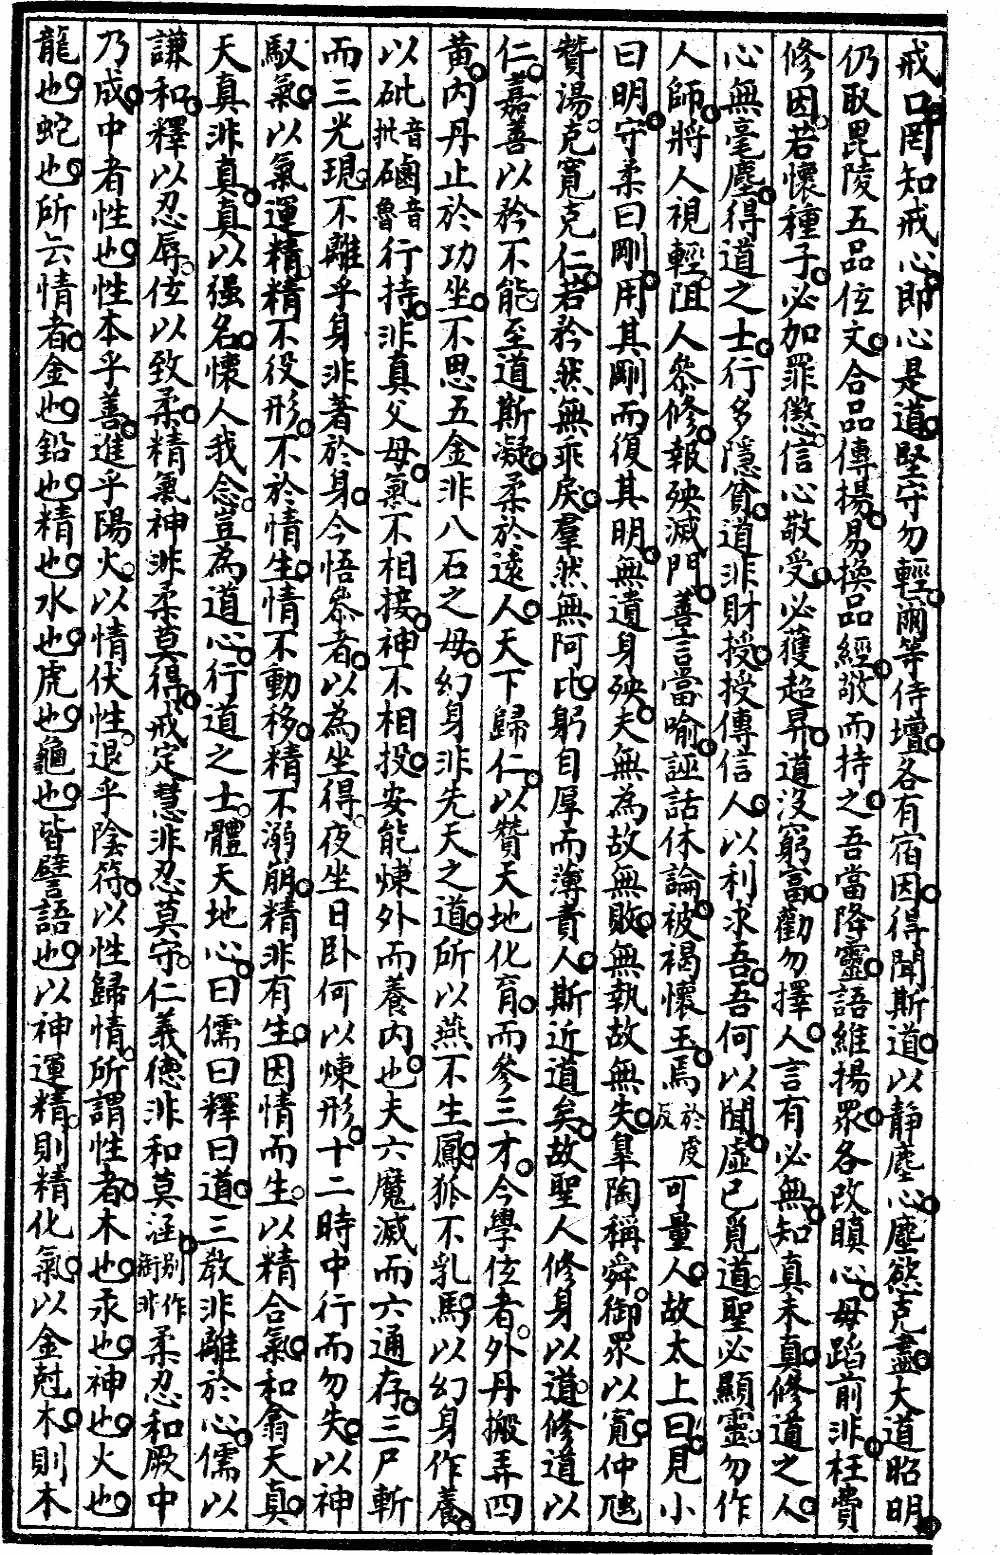 戒口罔知戒心即心是道堅守勿輕爾等侍壇各有宿因得聞斯道以靜塵心塵慾克盡大道昭明
仍取毘陵五品位文合品傳揚易換品經敬而持之吾當降靈語維揚眾各改瞋心毋蹈前非枉費
修因若懷種子必加罪懲信心敬受必獲超昇道沒窮富勸勿擇人言有必無知真未真修道之人
心無毫塵得道之士行多隱貧道非財授授傳信人以利求吾吾何以聞虛己覓道聖必顯靈勿作
人師將人視輕阻人叅修報殃滅門善言當喻誣話休論被褐懷玉焉於虔反可量人故太上曰見小
曰明守柔曰剛用其剛而復其明無遺身殃夫無為故無敗無執故無失皐陶稱舜御眾以寬仲虺
贊湯克寬克仁若矜然無乖戾羣然無阿比躬自厚而薄責人斯近道矣故聖人修身以道修道以
仁嘉善以矜不能至道斯凝柔於遠人天下歸仁以贊天地化育而參三才今學位者外丹搬弄四
黃內丹止於功坐不思五金非八石之母幻身非先天之道所以燕不生鳳狐不乳馬以幻身作養
以砒音批磠音魯行持非真父母氣不相接神不相投安能煉外而養內也夫六魔滅而六通存三尸斬
而三光現不離乎身非著於身今悟叅者以為坐得夜坐日臥何以煉形十二時中行而勿失以神
馭氣以氣運精精不役形不於情生情不動移精不溺崩精非有生因情而生以精合氣和翕天真
天真非真真以强名懷人我念豈為道心行道之士體天地心曰儒曰釋曰道三教非離於心儒以
謙和釋以忍辱位以致柔精氣神非柔莫得戒定慧非忍莫守仁義德非和莫涵別作衝非柔忍和厥中
乃成中者性也性本乎善進乎陽火以情伏性退乎陰符以性歸情所謂性者木也汞也神也火也
龍也蛇也所云情者金也鉛也精也水也虎也龜也皆譬語也以神運精則精化氣以金尅木則木